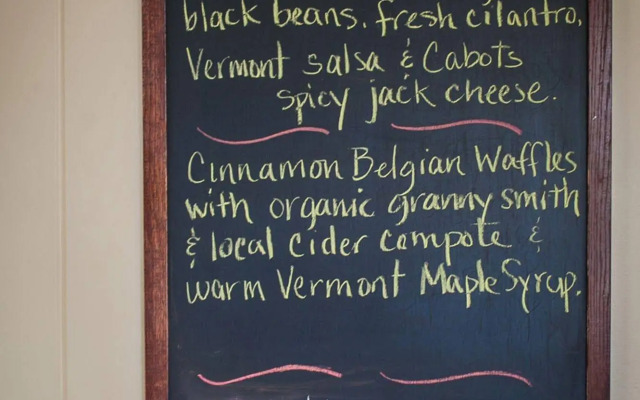 black beans. fresh cilantro,
Vermont salsa & Cabots
spicy jack cheese.
Cinnamon Belgian Waffles
with organic granny smith
& local cider compote &
warm Vermont Maple Syrup.